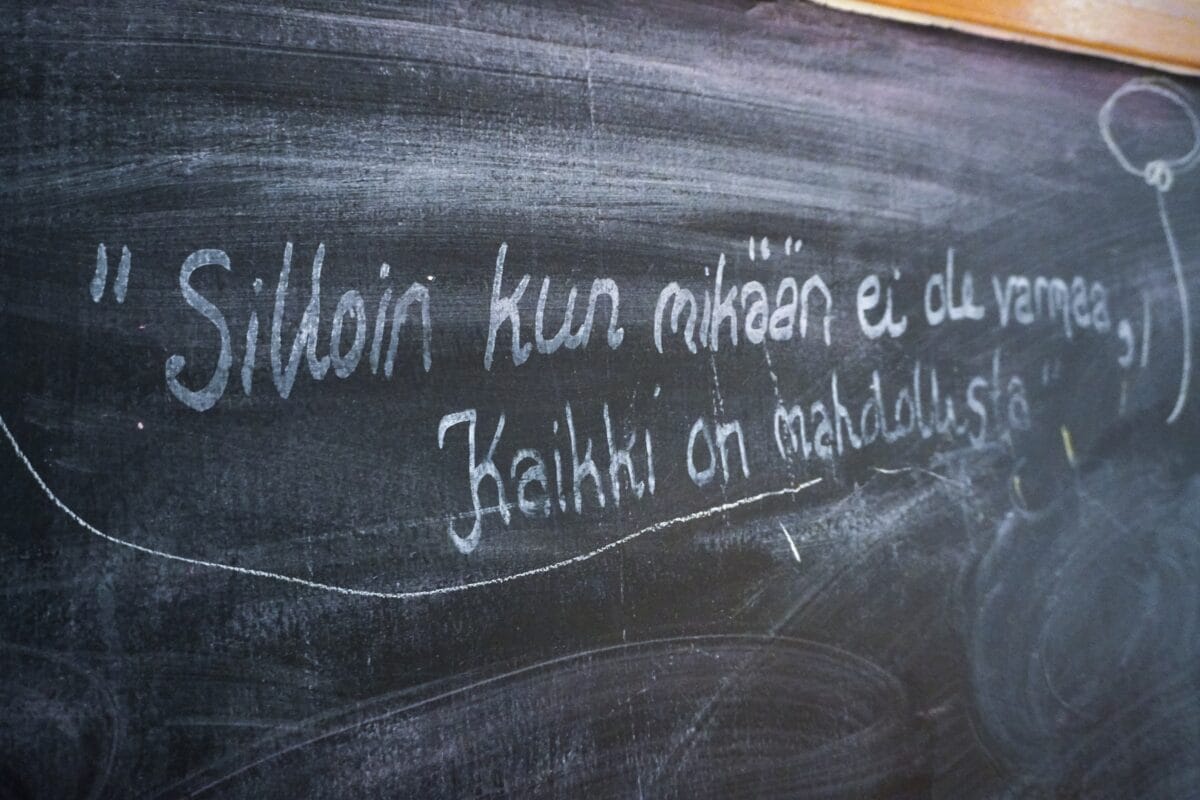 "Silloin kun mikään ei ole varmaa,
Kaikki on mahdollista"